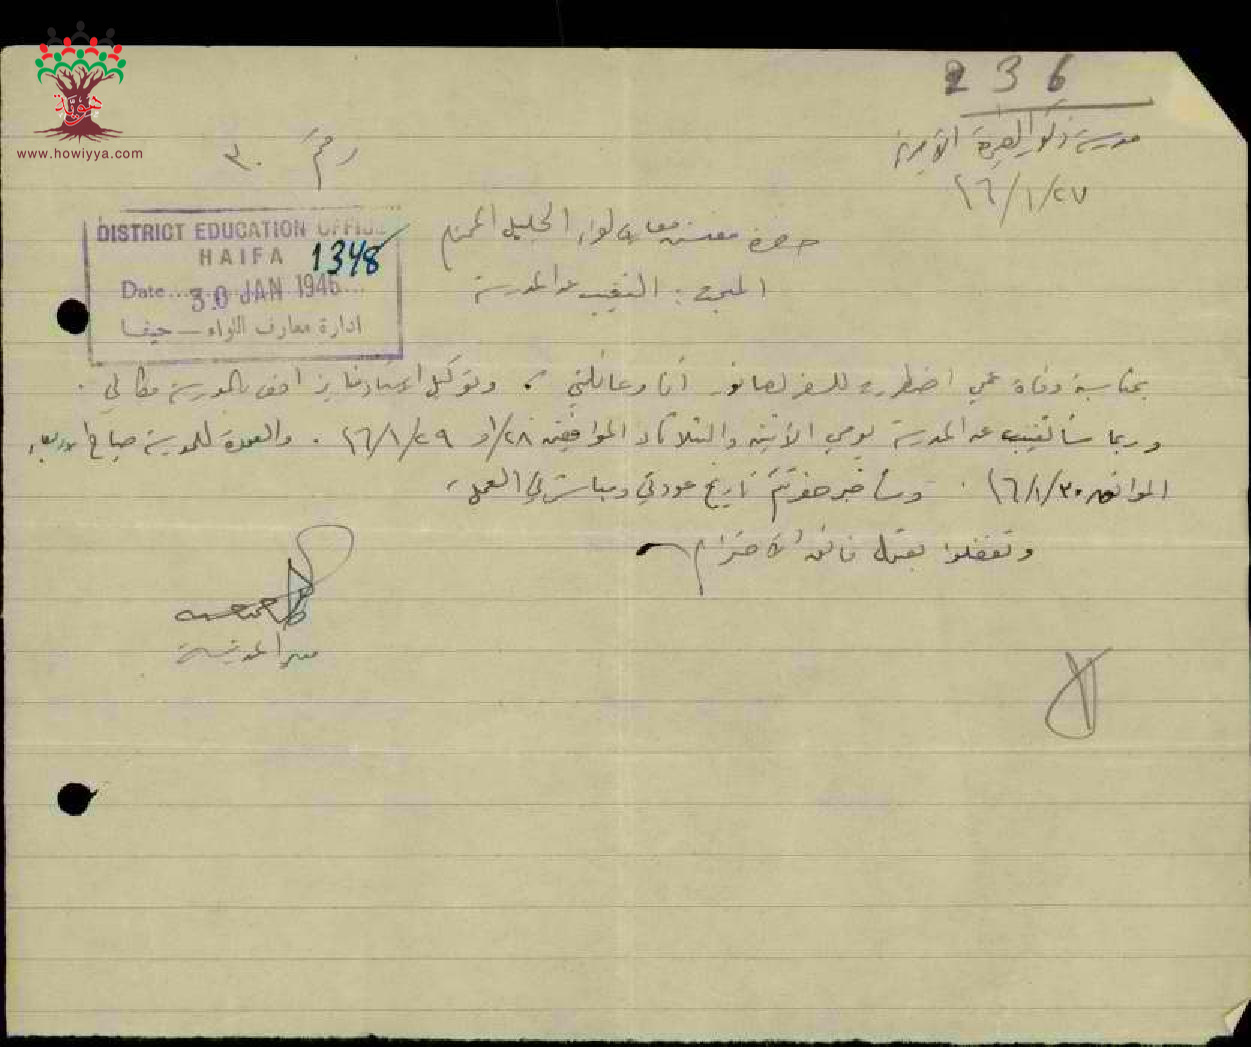 236
مدرسة ذكور البصة الأميرية
٢٧/١/٤٦
رقم ٣٠
DISTRICT EDUCATION OFFICE
HAIFA
1348
Date... 30 JAN 1946...
ادارة معارف اللواء - حيفا
حضرة مفتش معارف لواء الجليل المحترم
الموضوع: التغيب عن المدرسة
بمناسبة وفاة عمي اضطررت للسفر أنا وعائلتي، وتوكيل الاستاذ فايز بالمدرسة مكاني.
وربما سأتغيب عن المدرسة يومي الأثنين والثلاثاء الموافقين ٢٨/١ و ٢٩/١/٤٦. والعودة للمدرسة صباح الاربعاء
الموافق ٣٠/١/٤٦. وسأخبر حضرتكم تاريخ عودتي ومباشرتي العمل،
وتفضلوا بقبول فائق الاحترام
مدير المدرسة
هوية
www.howiyya.com